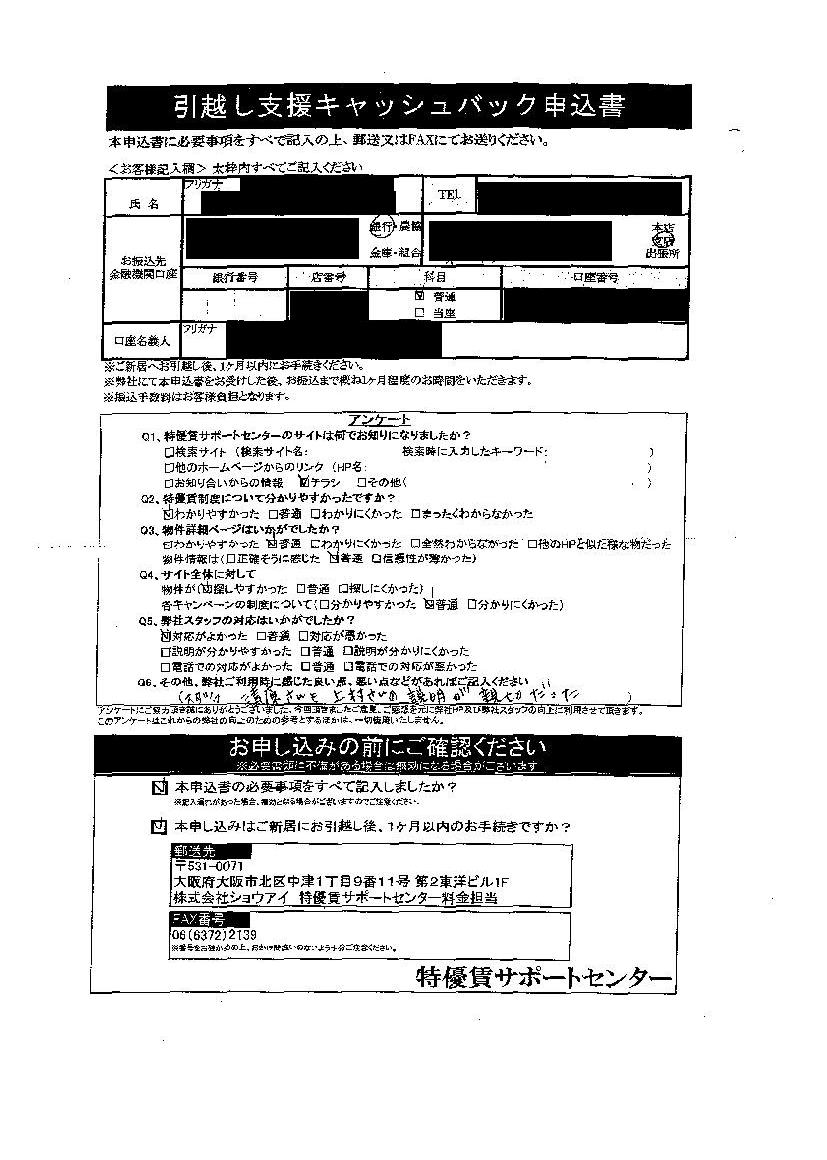 引越し支援キャッシュバック申込書
本申込書に必要事項をすべて記入の上、郵送又はFAXにてお送りください。
＜お客様記入欄＞ 太枠内すべてご記入ください
フリガナ
氏 名
TEL
お振込先
金融機関口座
銀行・農協
金庫・組合
本店
支店
出張所
銀行番号 店番号 科目 口座番号
☑ 普通
□ 当座
フリガナ
口座名義人
※ご新居へお引越し後、1ヶ月以内にお手続きください。
※弊社にて本申込書をお受けした後、お振込まで概ね1ヶ月程度のお時間をいただきます。
※振込手数料はお客様負担となります。
アンケート
Q1、特優賃サポートセンターのサイトは何でお知りになりましたか？
□検索サイト （検索サイト名： 検索時に入力したキーワード： ）
□他のホームページからのリンク （HP名： ）
□お知り合いからの情報 ☑チラシ □その他( )
Q2、特優賃制度について分かりやすかったですか？
☑わかりやすかった □普通 □わかりにくかった □まったくわからなかった
Q3、物件詳細ページはいかがでしたか？
□わかりやすかった ☑普通 □わかりにくかった □全然わからなかった □他のHPと似た様な物だった
物件情報は(□正確そうに感じた ☑普通 □信憑性が薄かった)
Q4、サイト全体に対して
物件が(☑探しやすかった □普通 □探しにくかった)
各キャンペーンの制度について(□分かりやすかった ☑普通 □分かりにくかった)
Q5、弊社スタッフの対応はいかがでしたか？
☑対応がよかった □普通 □対応が悪かった
□説明が分かりやすかった □普通 □説明が分かりにくかった
□電話での対応がよかった □普通 □電話での対応が悪かった
Q6、その他、弊社ご利用時に感じた良い点、悪い点などがあればご記入ください
さんも上村さんの説明が親切だった )
アンケートにご協力頂き誠にありがとうございました、今回頂きましたご意見、ご感想を元に弊社HP及び弊社スタッフの向上に利用させて頂きます。
このアンケートはこれからの弊社の向上のための参考とするほかは、一切使用いたしません。
お申し込みの前にご確認ください
※必要書類に不備がある場合は無効になる場合がございます
☑ 本申込書の必要事項をすべて記入しましたか？
※記入漏れがあった場合、無効となる場合がございますのでご注意ください。
☑ 本申し込みはご新居にお引越し後、1ヶ月以内のお手続きですか？
郵送先
〒531-0071
大阪府大阪市北区中津1丁目9番11号 第2東洋ビル1F
株式会社ショウアイ 特優賃サポートセンター料金担当
FAX番号
06(6372)2139
※番号をお確かめの上、おかけ間違いのないよう十分ご注意ください。
特優賃サポートセンター